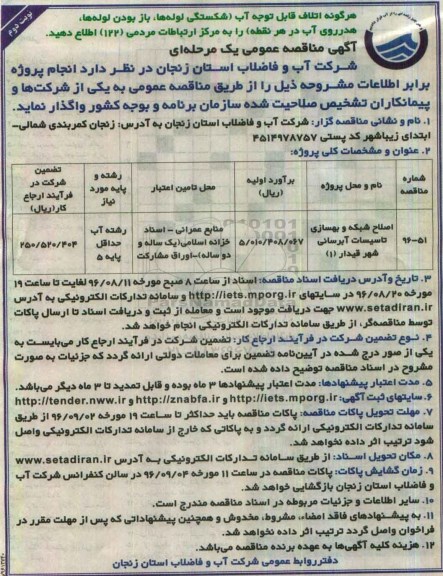 نوبت دوم
هرگونه اتلاف قابل توجه آب (شکستگی لوله‌ها، باز بودن لوله‌ها،
هدرروی آب در هر نقطه) را به مرکز ارتباطات مردمی (۱۲۲) اطلاع دهید.
آگهی مناقصه عمومی یک مرحله‌ای
شرکت آب و فاضلاب استان زنجان در نظر دارد انجام پروژه
برابر اطلاعات مشروحه ذیل را از طریق مناقصه عمومی به یکی از شرکت‌ها و
پیمانکاران تشخیص صلاحیت شده سازمان برنامه و بوجه کشور واگذار نماید.
۱. نام و نشانی مناقصه گزار: شرکت آب و فاضلاب استان زنجان به آدرس: زنجان کمربندی شمالی-
ابتدای زیباشهر کد پستی ۴۵۱۴۹۷۸۷۵۷
۲. عنوان و مشخصات کلی پروژه:
شماره مناقصه | نام و محل پروژه | برآورد اولیه (ریال) | محل تامین اعتبار | رشته و پایه مورد نیاز | تضمین شرکت در فرآیند ارجاع کار(ریال)
۹۶-۵۱ | اصلاح شبکه و بهسازی تاسیسات آبرسانی شهر قیدار (۱) | ۵/۰۱۰/۴۰۸/۰۶۷ | منابع عمرانی – اسناد خزانه اسلامی(یک ساله و دو ساله)-اوراق مشارکت | رشته آب حداقل پایه ۵ | ۲۵۰/۵۲۰/۴۰۴
۳. تاریخ وآدرس دریافت اسناد مناقصه: اسناد از ساعت ۸ صبح مورخه ۹۶/۰۸/۱۱ لغایت تا ساعت ۱۹
مورخه ۹۶/۰۸/۲۰ در سایتهای http://iets.mporg.ir و سامانه تدارکات الکترونیکی به آدرس
www.setadiran.ir جهت دریافت موجود است و معامله از ثبت و دریافت اسناد تا ارسال پاکات
توسط مناقصه‌گر، از طریق سامانه تدارکات الکترونیکی انجام خواهد شد.
۴. نوع تضمین شرکت در فرآیند ارجاع کار: تضمین شرکت در فرآیند ارجاع کار می‌بایست به
یکی از صور درج شده در آیین‌نامه تضمین برای معاملات دولتی ارائه گردد که جزییات به صورت
مشروح در اسناد مناقصه توضیح داده شده است.
۵. مدت اعتبار پیشنهادها: مدت اعتبار پیشنهادها ۳ ماه بوده و قابل تمدید تا ۳ ماه دیگر می‌باشد.
۶. سایتهای ثبت آگهی: http://iets.mporg.ir و http://znabfa.ir و http://tender.nww.ir
۷. مهلت تحویل پاکات مناقصه: پاکات مناقصه باید حداکثر تا ساعت ۱۹ مورخه ۹۶/۰۹/۰۲ از طریق
سامانه تدارکات الکترونیکی ارائه گردد و به پاکاتی که خارج از سامانه تدارکات الکترونیکی واصل
شود ترتیب اثر داده نخواهد شد.
۸. مکان تحویل اسناد: از طریق سامانه تدارکات الکترونیکی به آدرس www.setadiran.ir
۹. زمان گشایش پاکات: پاکات مناقصه در ساعت ۱۱ مورخه ۹۶/۰۹/۰۴ در سالن کنفرانس شرکت آب
و فاضلاب استان زنجان بازگشایی خواهد شد.
۱۰. سایر اطلاعات و جزئیات مربوطه در اسناد مناقصه مندرج است.
۱۱. به پیشنهادهای فاقد امضاء، مشروط، مخدوش و همچنین پیشنهاداتی که پس از مهلت مقرر در
فراخوان واصل گردد ترتیب اثر داده نخواهد شد.
۱۲. هزینه کلیه آگهی‌ها به عهده برنده مناقصه می‌باشد.
دفترروابط عمومی شرکت آب و فاضلاب استان زنجان